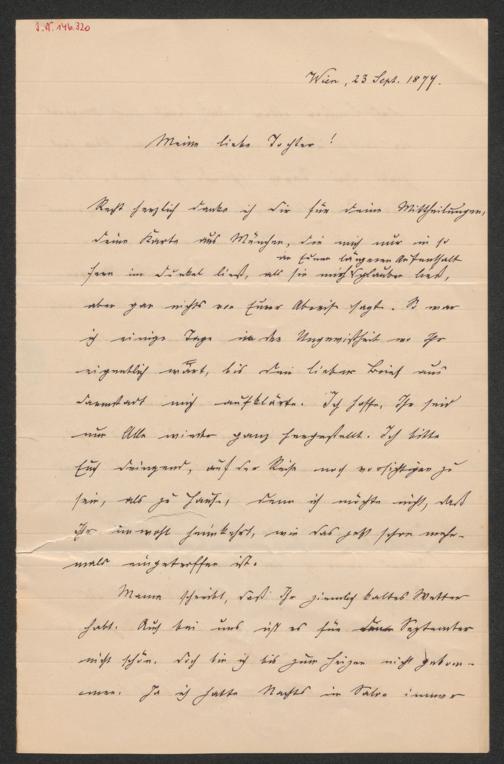 I.N. 146.320
Wien, 23 Sept. 1877.
Meine liebe Tochter!
Recht herzlich danke ich Dir für deine Mittheilungen,
deine Karte aus München, die mich nur in so
an Euren längeren Aufenthalt
fern im Dunkel ließ, als sie mich glauben ließ,
aber gar nichts von Eurer Abreise sagte. So war
ich einige Tage in der Ungewißheit wo Ihr
eigentlich wärt, bis Dein lieber Brief aus
Darmstadt mich aufklärte. Ich hoffe, Ihr seid
nun Alle wieder ganz hergestellt. Ich bitte
Euch dringend, auf der Reise noch vorsichtiger zu
sein, als zu Hause, denn ich möchte nicht, daß
Ihr unwohl heimkehrt, wie das jetzt schon mehr-
mals eingetroffen ist.
Mama schreibt, daß Ihr ziemlich kaltes Wetter
habt. Auch bei uns ist es für September
nicht schön. Doch bin ich bis zum Heizen nicht gekom-
men. Ja ich hatte Nachts im Salon immer